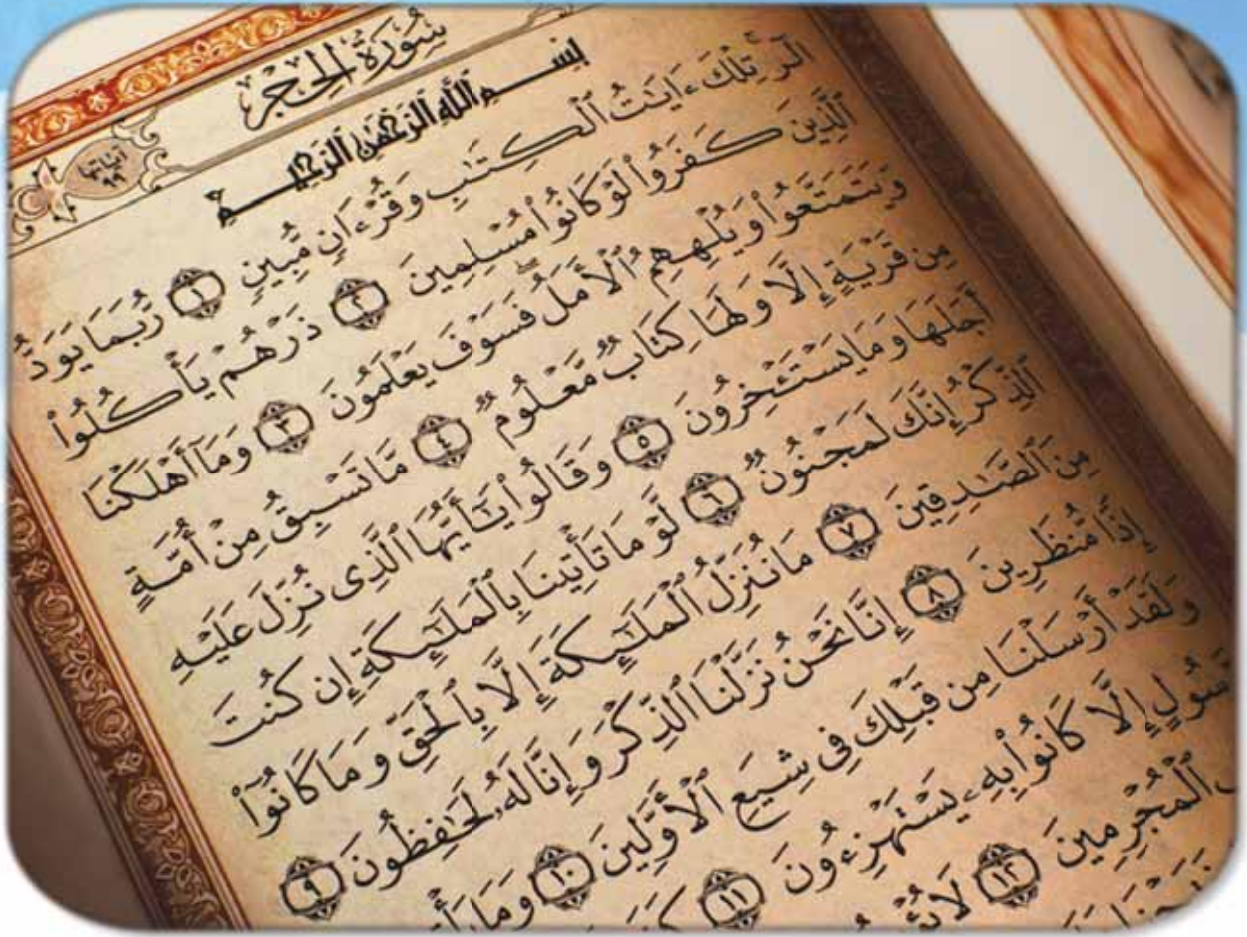 سُورَةُ الحِجْرِ
آياتها ٩٩
بِسْمِ ٱللَّهِ ٱلرَّحْمَٰنِ ٱلرَّحِيمِ
الٓرۚ تِلْكَ ءَايَٰتُ ٱلْكِتَٰبِ وَقُرْءَانٍ مُّبِينٍ ١ رُّبَمَا يَوَدُّ
ٱلَّذِينَ كَفَرُوا۟ لَوْ كَانُوا۟ مُسْلِمِينَ ٢ ذَرْهُمْ يَأْكُلُوا۟
وَيَتَمَتَّعُوا۟ وَيُلْهِهِمُ ٱلْأَمَلُۖ فَسَوْفَ يَعْلَمُونَ ٣ وَمَآ أَهْلَكْنَا
مِن قَرْيَةٍ إِلَّا وَلَهَا كِتَابٌ مَّعْلُومٌ ٤ مَّا تَسْبِقُ مِنْ أُمَّةٍ
أَجَلَهَا وَمَا يَسْتَـْٔخِرُونَ ٥ وَقَالُوا۟ يَٰٓأَيُّهَا ٱلَّذِى نُزِّلَ عَلَيْهِ
ٱلذِّكْرُ إِنَّكَ لَمَجْنُونٌ ٦ لَّوْ مَا تَأْتِينَا بِٱلْمَلَٰٓئِكَةِ إِن كُنتَ
مِنَ ٱلصَّٰدِقِينَ ٧ مَا نُنَزِّلُ ٱلْمَلَٰٓئِكَةَ إِلَّا بِٱلْحَقِّ وَمَا كَانُوٓا۟
إِذًا مُّنظَرِينَ ٨ إِنَّا نَحْنُ نَزَّلْنَا ٱلذِّكْرَ وَإِنَّا لَهُۥ لَحَٰفِظُونَ ٩
وَلَقَدْ أَرْسَلْنَا مِن قَبْلِكَ فِى شِيَعِ ٱلْأَوَّلِينَ ١٠ وَمَا
إِلَّا كَانُوا۟ بِهِۦ يَسْتَهْزِءُونَ ١١
ٱلْمُجْرِمِينَ ١٢ لَا